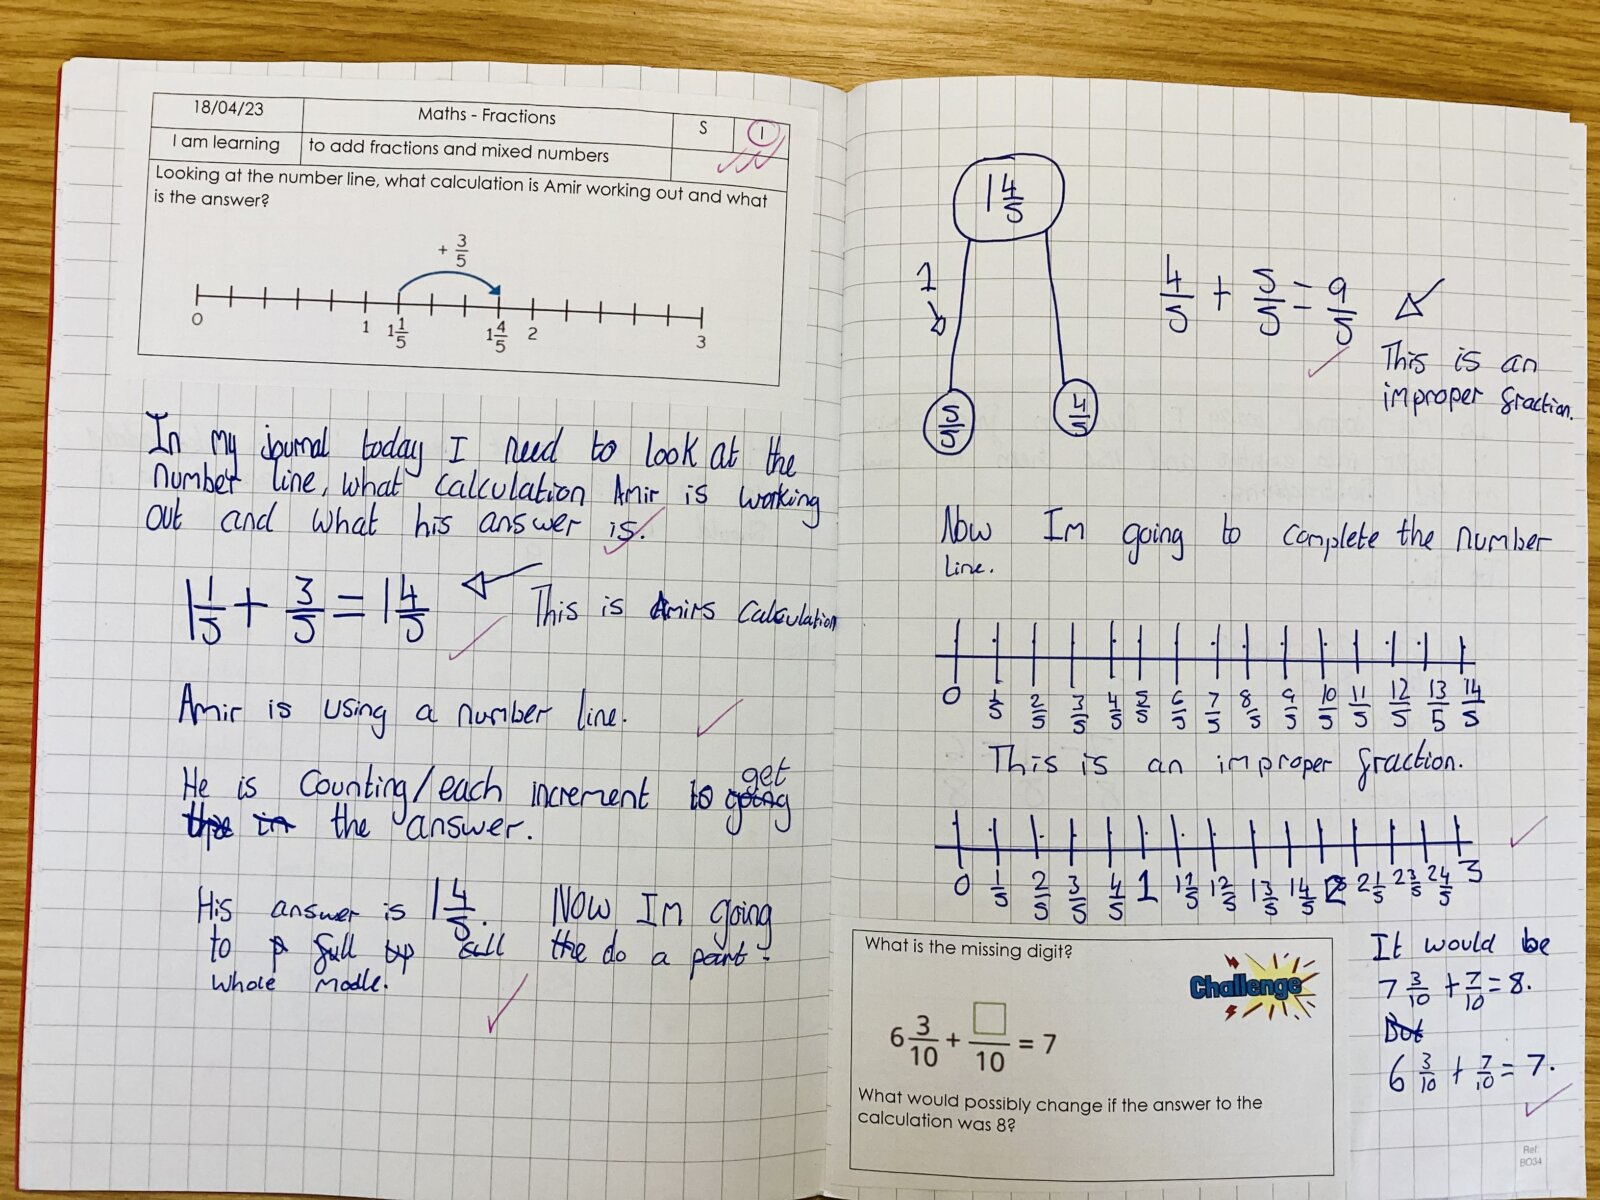 18/04/23 Maths - Fractions S I
I am learning to add fractions and mixed numbers
Looking at the number line, what calculation is Amir working out and what
is the answer?
+ 3/5
0 1 1 1/5 1 4/5 2 3
In my journal today I need to look at the
number line, what calculation Amir is working
out and what his answer is.
1 1/5 + 3/5 = 1 4/5
This is Amirs calculation
Amir is using a number line.
He is counting/each increment to get
the answer.
His answer is 1 4/5. Now Im going
to do a part-
whole modle.
1 4/5
1
5/5 4/5
4/5 + 5/5 = 9/5
This is an
improper fraction.
Now Im going to complete the number
line.
0 1/5 2/5 3/5 4/5 5/5 6/5 7/5 8/5 9/5 10/5 11/5 12/5 13/5 14/5
This is an improper fraction.
0 1/5 2/5 3/5 4/5 1 1 1/5 1 2/5 1 3/5 1 4/5 2 2 1/5 2 3/5 2 4/5 3
What is the missing digit?
Challenge
6 3/10 + □/10 = 7
What would possibly change if the answer to the
calculation was 8?
It would be
7 3/10 + 7/10 = 8.
But
6 3/10 + 7/10 = 7.
Ref:
BO34